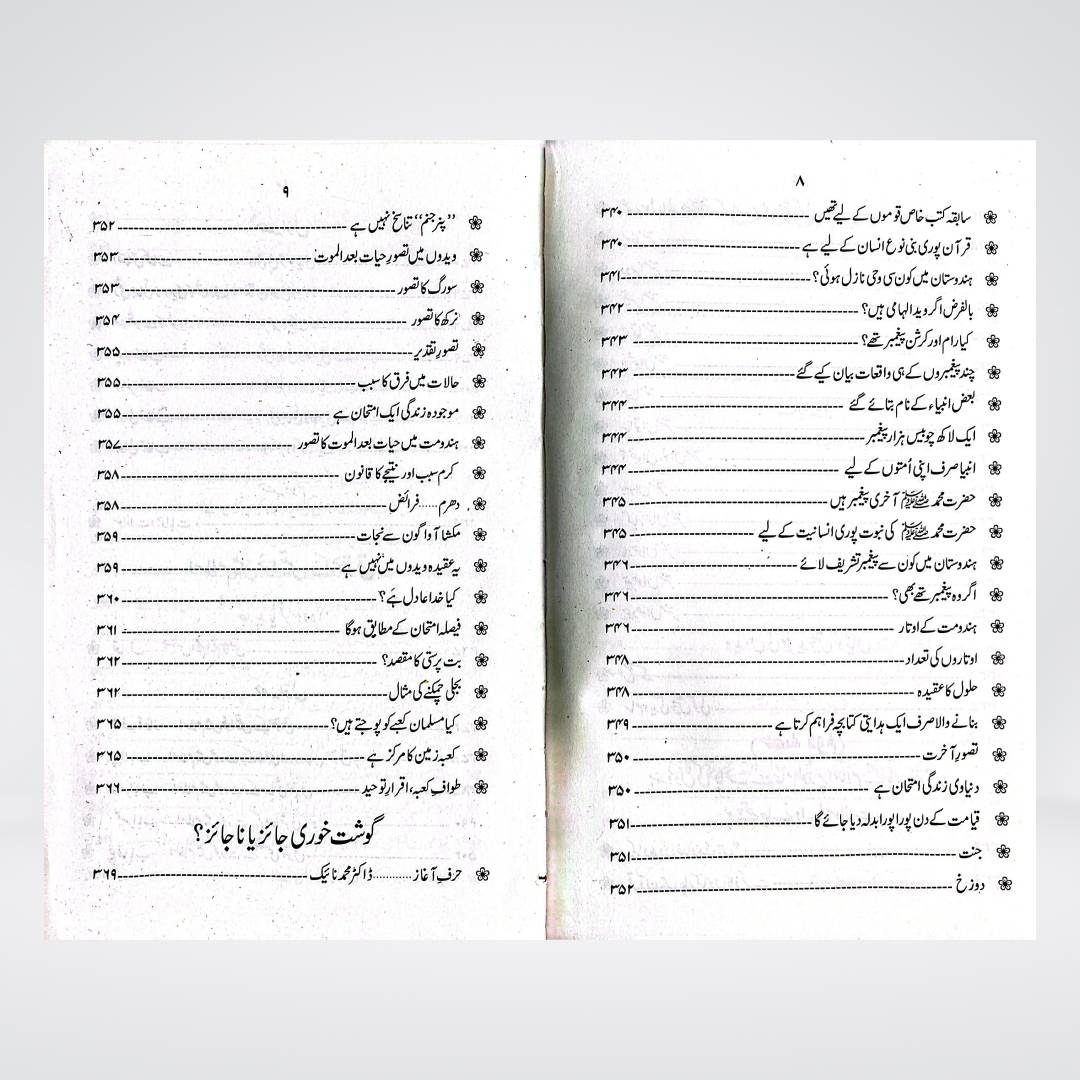 ۸
سابقہ کتب خاص قوموں کے لیے تھیں ۳۴۰
قرآن پوری بنی نوع انسان کے لیے ہے ۳۴۰
ہندوستان میں کون سی وحی نازل ہوئی؟ ۳۴۱
بالفرض اگر وید الہامی ہیں؟ ۳۴۲
کیا رام اور کرشن پیغمبر تھے؟ ۳۴۳
چند پیغمبروں کے ہی واقعات بیان کیے گئے ۳۴۳
بعض انبیاء کے نام بتائے گئے ۳۴۴
ایک لاکھ چوبیس ہزار پیغمبر ۳۴۴
انبیا صرف اپنی اُمتوں کے لیے ۳۴۴
حضرت محمد ﷺ آخری پیغمبر ہیں ۳۴۵
حضرت محمد ﷺ کی نبوت پوری انسانیت کے لیے ۳۴۵
ہندوستان میں کون سے پیغمبر تشریف لائے ۳۴۶
اگر وہ پیغمبر تھے بھی؟ ۳۴۶
ہندومت کے اوتار ۳۴۶
اوتاروں کی تعداد ۳۴۸
حلول کا عقیدہ ۳۴۸
بنانے والا صرف ایک ہدایتی کتابچہ فراہم کرتا ہے ۳۴۹
تصورِ آخرت ۳۵۰
دنیاوی زندگی امتحان ہے ۳۵۰
قیامت کے دن پورا پورا بدلہ دیا جائے گا ۳۵۱
جنت ۳۵۱
دوزخ ۳۵۲
۹
”پنرجنم“ تناسخ نہیں ہے ۳۵۲
ویدوں میں تصورِ حیات بعد الموت ۳۵۳
سورگ کا تصور ۳۵۳
نرکھ کا تصور ۳۵۴
تصورِ تقدیر ۳۵۵
حالات میں فرق کا سبب ۳۵۵
موجودہ زندگی ایک امتحان ہے ۳۵۵
ہندومت میں حیات بعد الموت کا تصور ۳۵۷
کرم سبب اور نتیجے کا قانون ۳۵۸
دھرم.....فرائض ۳۵۸
مکشا آواگون سے نجات ۳۵۹
یہ عقیدہ ویدوں میں نہیں ہے ۳۵۹
کیا خدا عادل ہے؟ ۳۶۰
فیصلہ امتحان کے مطابق ہوگا ۳۶۱
بت پرستی کا مقصد؟ ۳۶۲
بجلی چمکنے کی مثال ۳۶۲
کیا مسلمان کعبے کو پوجتے ہیں؟ ۳۶۵
کعبہ زمین کا مرکز ہے ۳۶۵
طوافِ کعبہ، اقرارِ توحید ۳۶۶
گوشت خوری جائز یا ناجائز؟
حرفِ آغاز...........ڈاکٹر محمد نائیک ۳۶۹